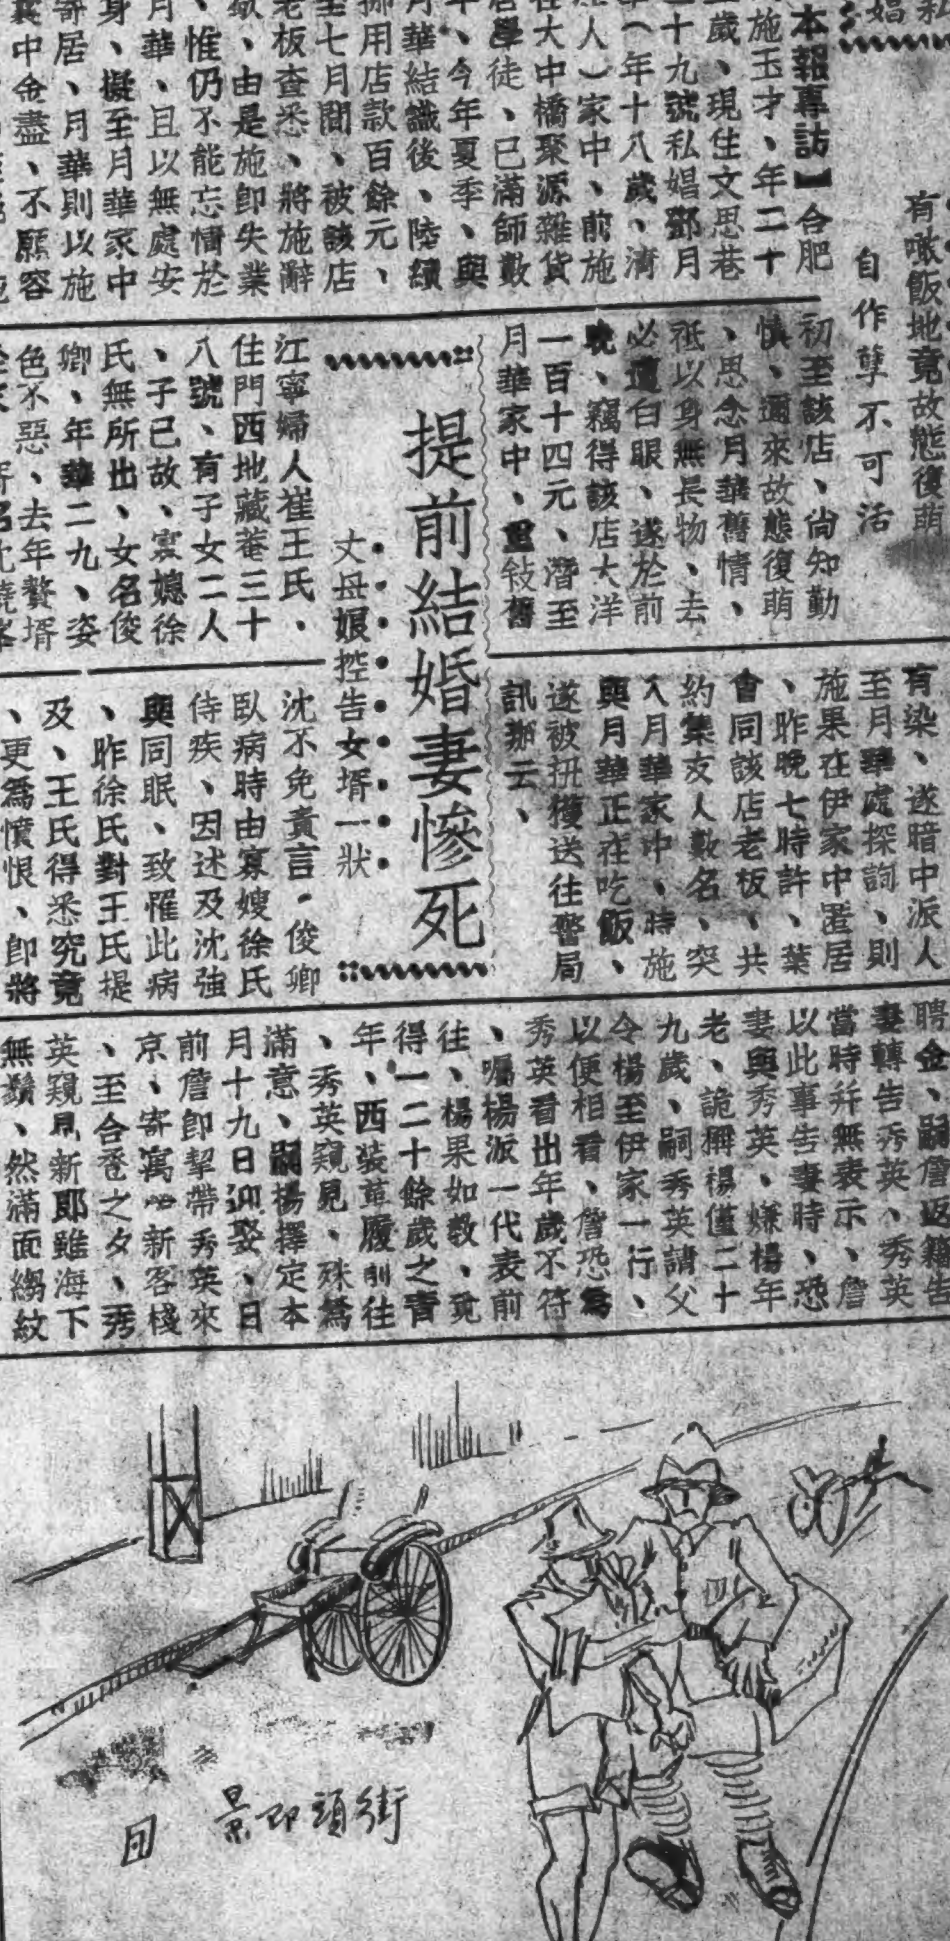 私
娼
有噉飯地竟故態復萌
自作孽不可活
本報專訪】合肥
施玉才、年二十
歲、現住文思巷
十九號私娼鄧月
（年十八歲、濟
人）家中、前施
在大中橋聚源雜貨
學徒、已滿師數
、今年夏季、與
月華結識後、陸續
挪用店款百餘元、
至七月間、被該店
老板查悉、將施辭
歇、由是施卽失業
、惟仍不能忘情於
月華、且以無處安
身、擬至月華家中
寄居、月華則以施
囊中金盡、不願容
初至該店、尙知勤
愼、邇來故態復萌
、思念月華舊情、
祗以身無長物、去
必遭白眼、遂於前
晚、竊得該店大洋
一百十四元、潛至
月華家中、重敍舊
有染、遂暗中派人
至月華處探詢、則
施果在伊家中匿居
、昨晚七時許、葉
會同該店老板、共
約集友人數名、突
入月華家中、時施
與月華正在吃飯、
遂被扭獲送往警局
訊辦云、
提前結婚妻慘死
丈母娘控告女壻一狀
江寧婦人崔王氏、
住門西地藏菴三十
八號、有子女二人
、子已故、寡媳徐
氏無所出、女名俊
卿、年華二九、姿
色不惡、去年贅壻
沈不免責言。俊卿
臥病時由寡嫂徐氏
侍疾、因述及沈強
與同眠、致罹此病
、昨徐氏對王氏提
及、王氏得悉究竟
、更爲憤恨、卽將
聘金、嗣詹返籍告
妻轉告秀英、秀英
當時幷無表示、詹
以此事告妻時、恐
妻與秀英、嫌楊年
老、詭稱楊僅二十
九歲、嗣秀英請父
令楊至伊家一行、
以便相看、詹恐爲
秀英看出年歲不符
、囑楊派一代表前
往、楊果如敎、覓
得一二十餘歲之靑
年、西裝革履前往
、秀英窺見、殊爲
滿意、嗣楊擇定本
月十九日迎娶、日
前詹卽挈帶秀英來
京、寄寓新客棧
、至合卺之夕、秀
英窺見新郞雖海下
無鬚、然滿面縐紋
街頭卽景